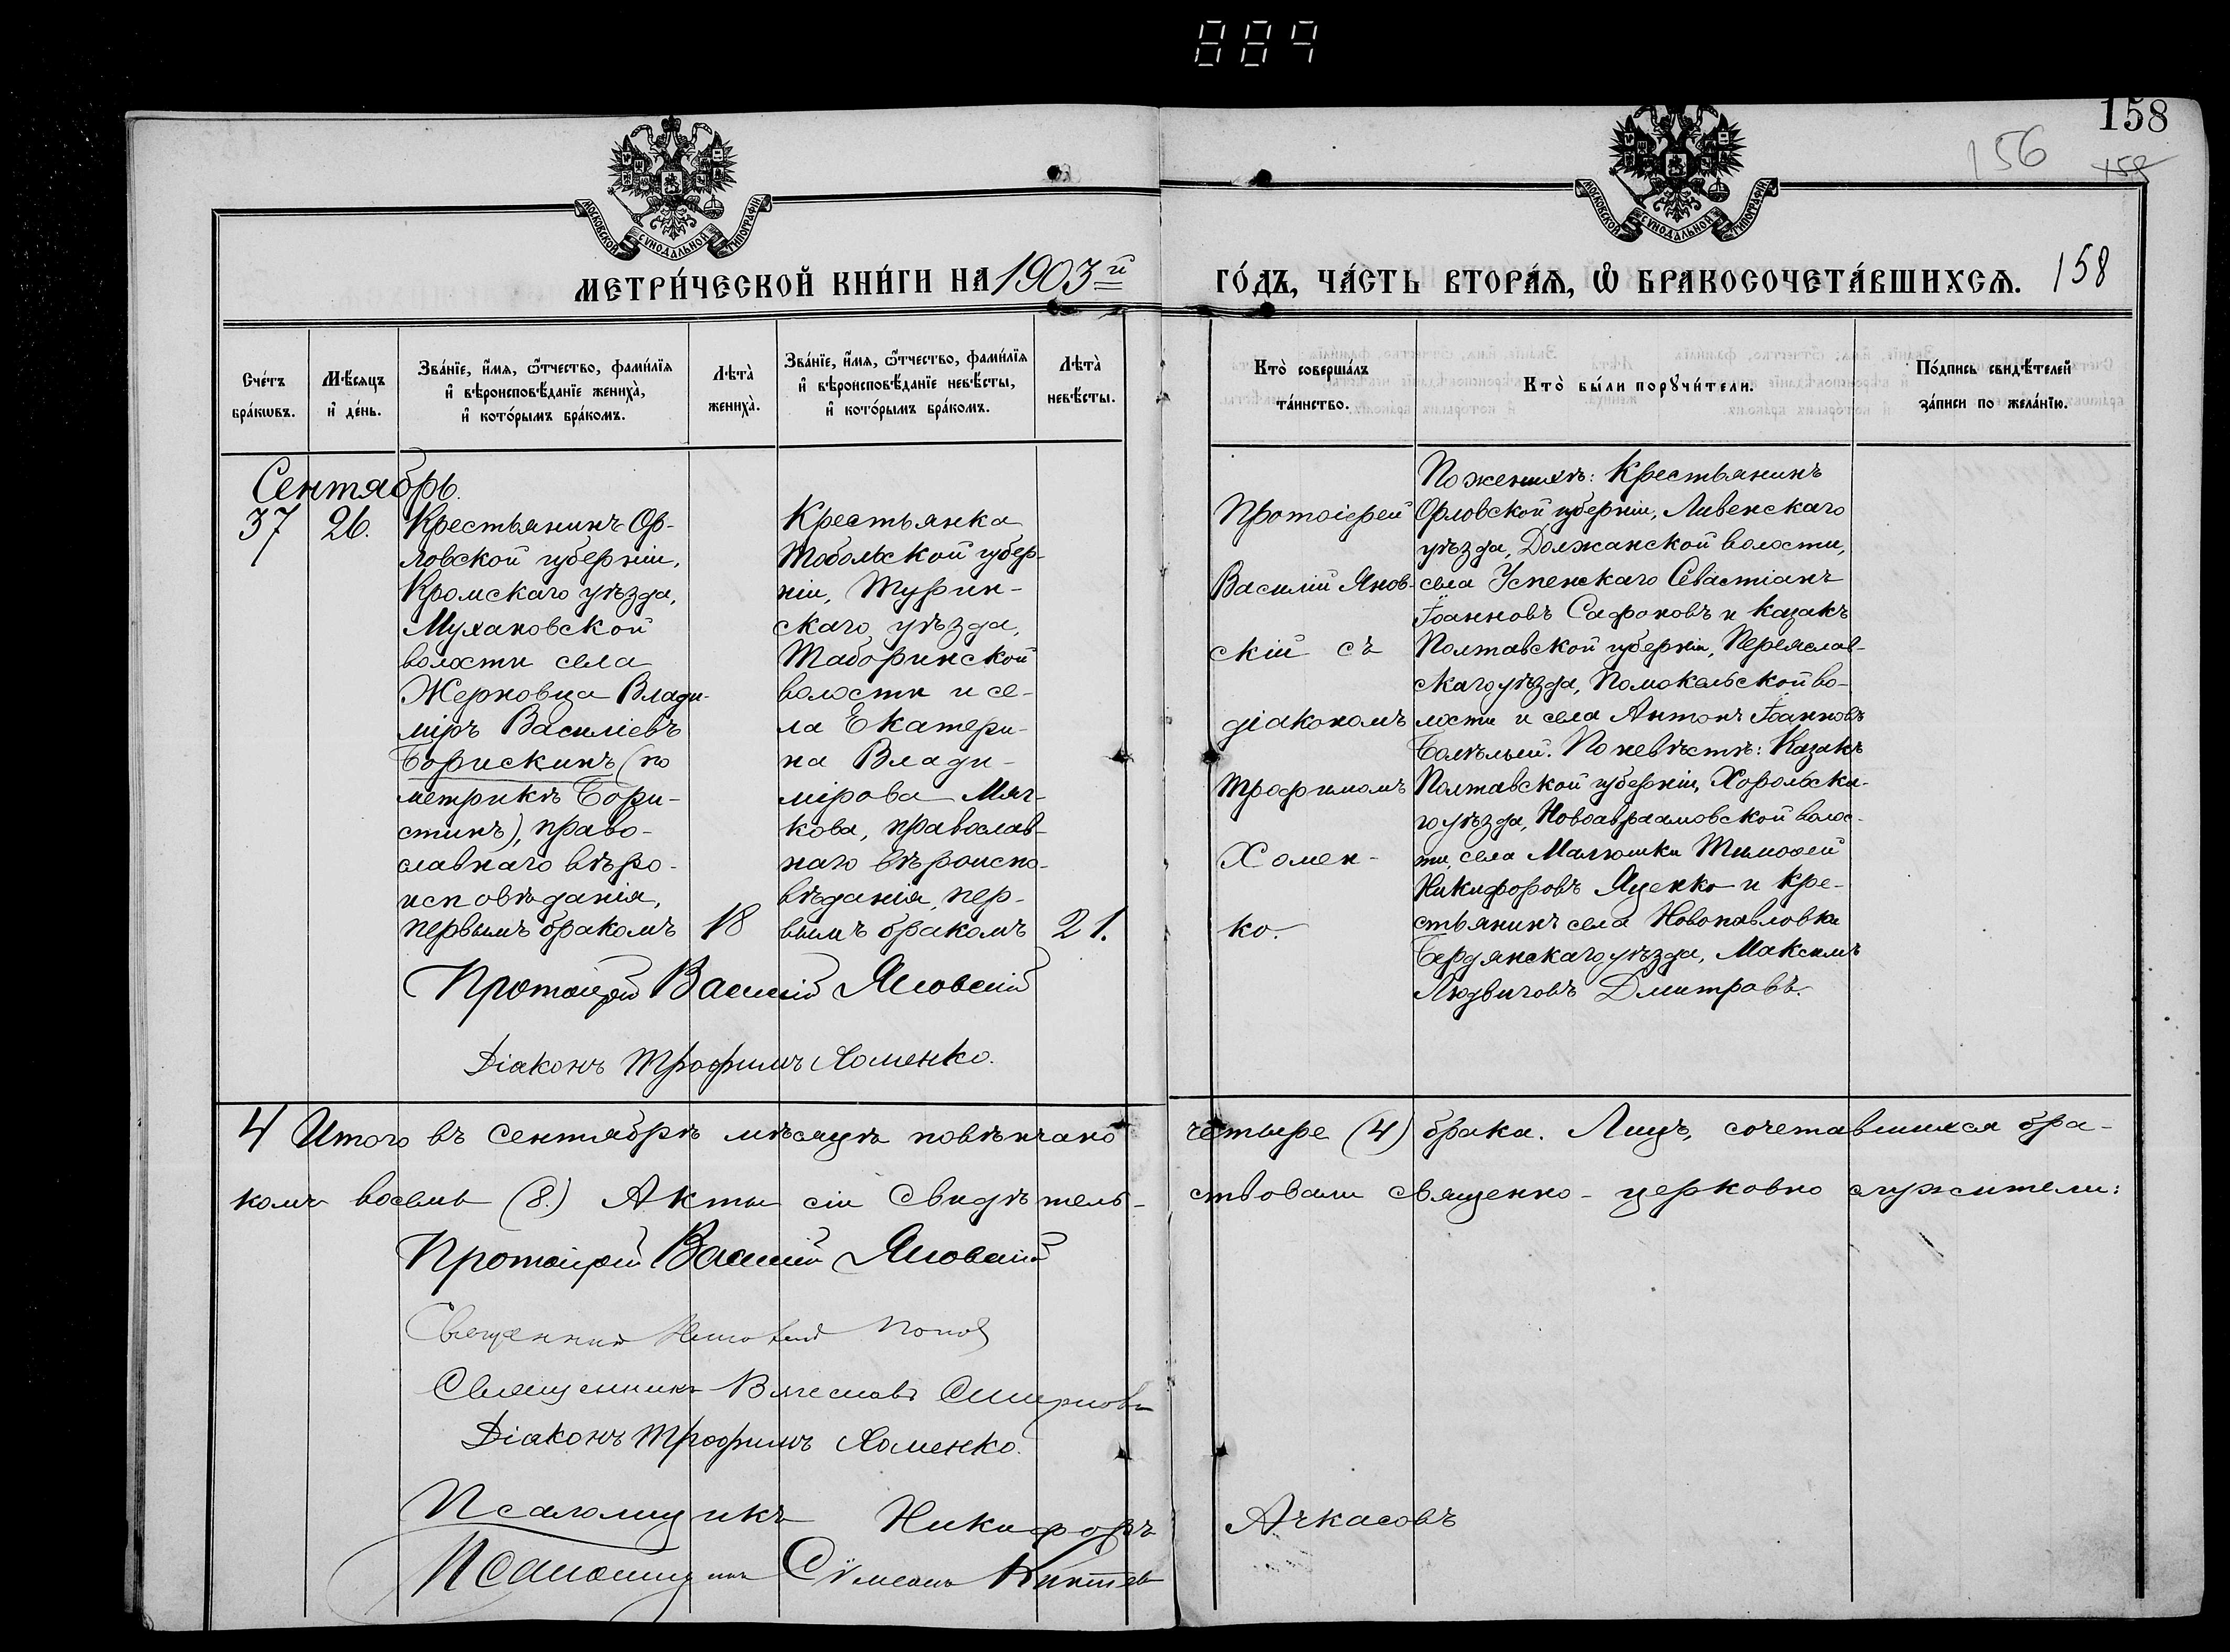 889
158
156
158
МОСКОВСКОЙ СУНОДАЛЬНОЙ ТИПОГРАФІИ
МОСКОВСКОЙ СУНОДАЛЬНОЙ ТИПОГРАФІИ
МЕТРИ́ЧЕСКОЙ КНИ́ГИ НА 1903й ГО́ДЪ, ЧА́СТЬ ВТОРА́Ѧ, Ѡ҆ БРАКОСОЧЕТА́ВШИХСѦ. 158
Сче́тъ
бра́кѡвъ.
Мѣ́сяцъ
и҆ де́нь.
Зва́нїе, и҆́мя, ѻ҆́тчество, фами́лїя
и҆ вѣроисповѣ́данїе жениха̀,
и҆ кото́рымъ бра́комъ.
Лѣта̀
жениха̀.
Зва́нїе, и҆́мя, ѻ҆́тчество, фами́лїя
и҆ вѣроисповѣ́данїе невѣ́сты,
и҆ кото́рымъ бра́комъ.
Лѣта̀
невѣ́сты.
Кто̀ соверша́лъ
та́инство.
Кто̀ бы́ли порꙋчи́тели.
По́дпись свидѣ́телей
за́писи по жела́нїю.
Сентябрь.
37
26.
Крестьянинъ Ор-
ловской губерніи,
Кромскаго уѣзда,
Мухановской
волости села
Жерновца Влади-
міръ Василіевъ
Борискинъ (по
метрикѣ Бори-
стинъ), право-
славнаго вѣро-
исповѣданія,
первымъ бракомъ
18
Крестьянка
Тобольской губер-
ніи, Турин-
скаго уѣзда,
Таборинской
волости и се-
ла Екатери-
на Влади-
мірова Мяг-
кова, православ-
наго вѣроиспо-
вѣданія, пер-
вымъ бракомъ
21.
Протоіерей
Василій Янов-
скій съ
діакономъ
Трофимомъ
Хомен-
ко.
По женихѣ: Крестьянинъ
Орловской губерніи, Ливенскаго
уѣзда, Должанской волости,
села Успенскаго Севастіанъ
Іоанновъ Сафоновъ и казакъ
Полтавской губерніи, Переяслав-
скаго уѣзда, Помокельской во-
лости и села Антонъ Іоанновъ
По невѣстѣ: Казакъ
Полтавской губерніи, Хорольска-
го уѣзда, Новоаврамовской волос-
ти, села Малюшки Тимофей
Никифоровъ Яценко и кре-
стьянинъ села Новопавловки
Бердянскаго уѣзда, Максимъ
Людвиговъ Дмитровъ.
Протоіерей Василій Яновскій
Діаконъ Трофимъ Хоменко.
4 Итого въ Сентябрѣ мѣсяцѣ повѣнчано четыре (4) брака. Лицъ, сочетавшихся бра-
комъ восемь (8.) Акты сіи свидѣтель- ствовали священно-церковно служители:
Протоіерей Василій Яновскій
Священникъ Попов
Священникъ Вячеславъ Смирновъ
Діаконъ Трофимъ Хоменко.
Псаломщикъ Никифоръ Ачкасовъ
Псаломщикъ Сѵмеонъ